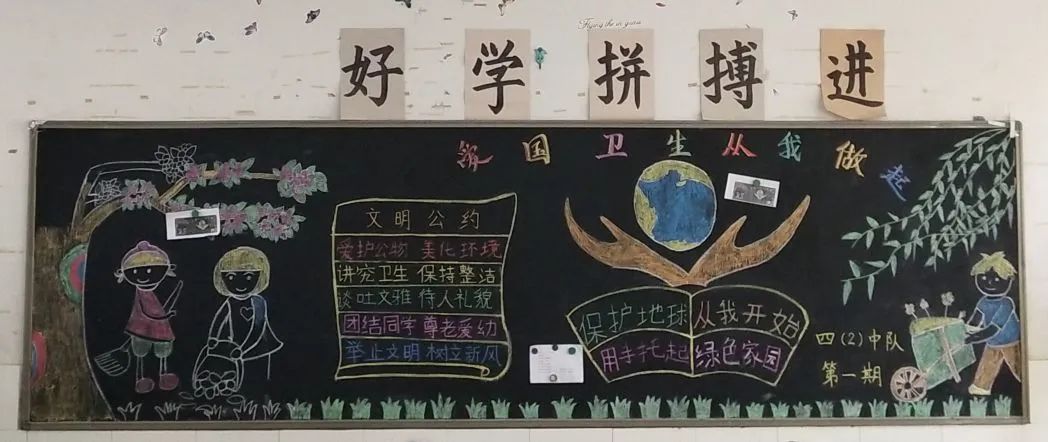 好学拼搏进
爱国卫生从我做起
文明公约
爱护公物 美化环境
讲究卫生 保持整洁
谈吐文雅 待人礼貌
团结同学 尊老爱幼
举止文明 树立新风
保护地球 从我开始
用手托起 绿色家园
四(2)中队
第一期